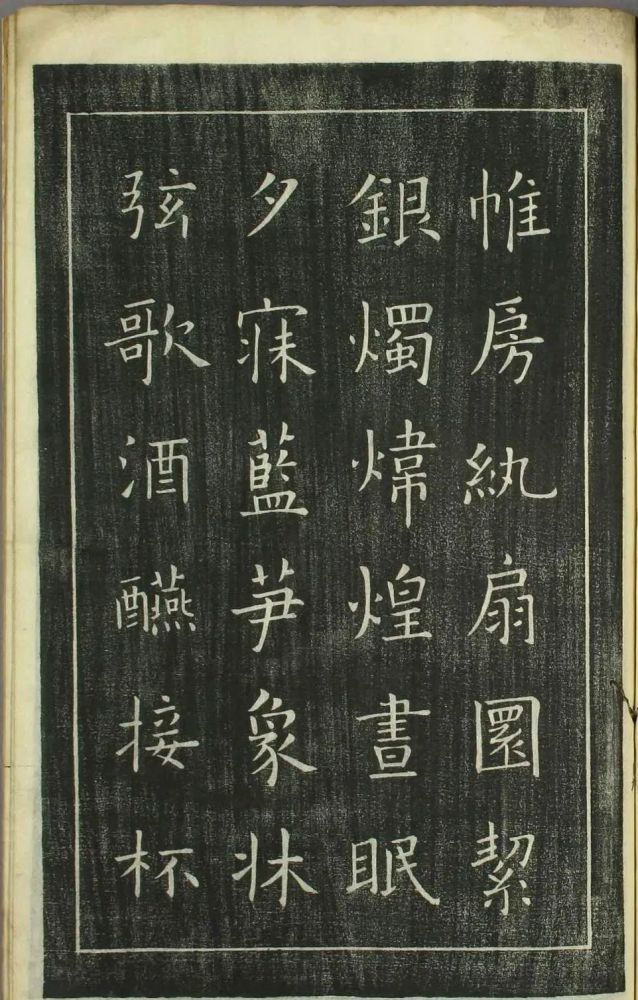 帷房紈扇圎絜
銀燭煒煌晝眠
夕寐藍笋象牀
弦歌酒醼接杯